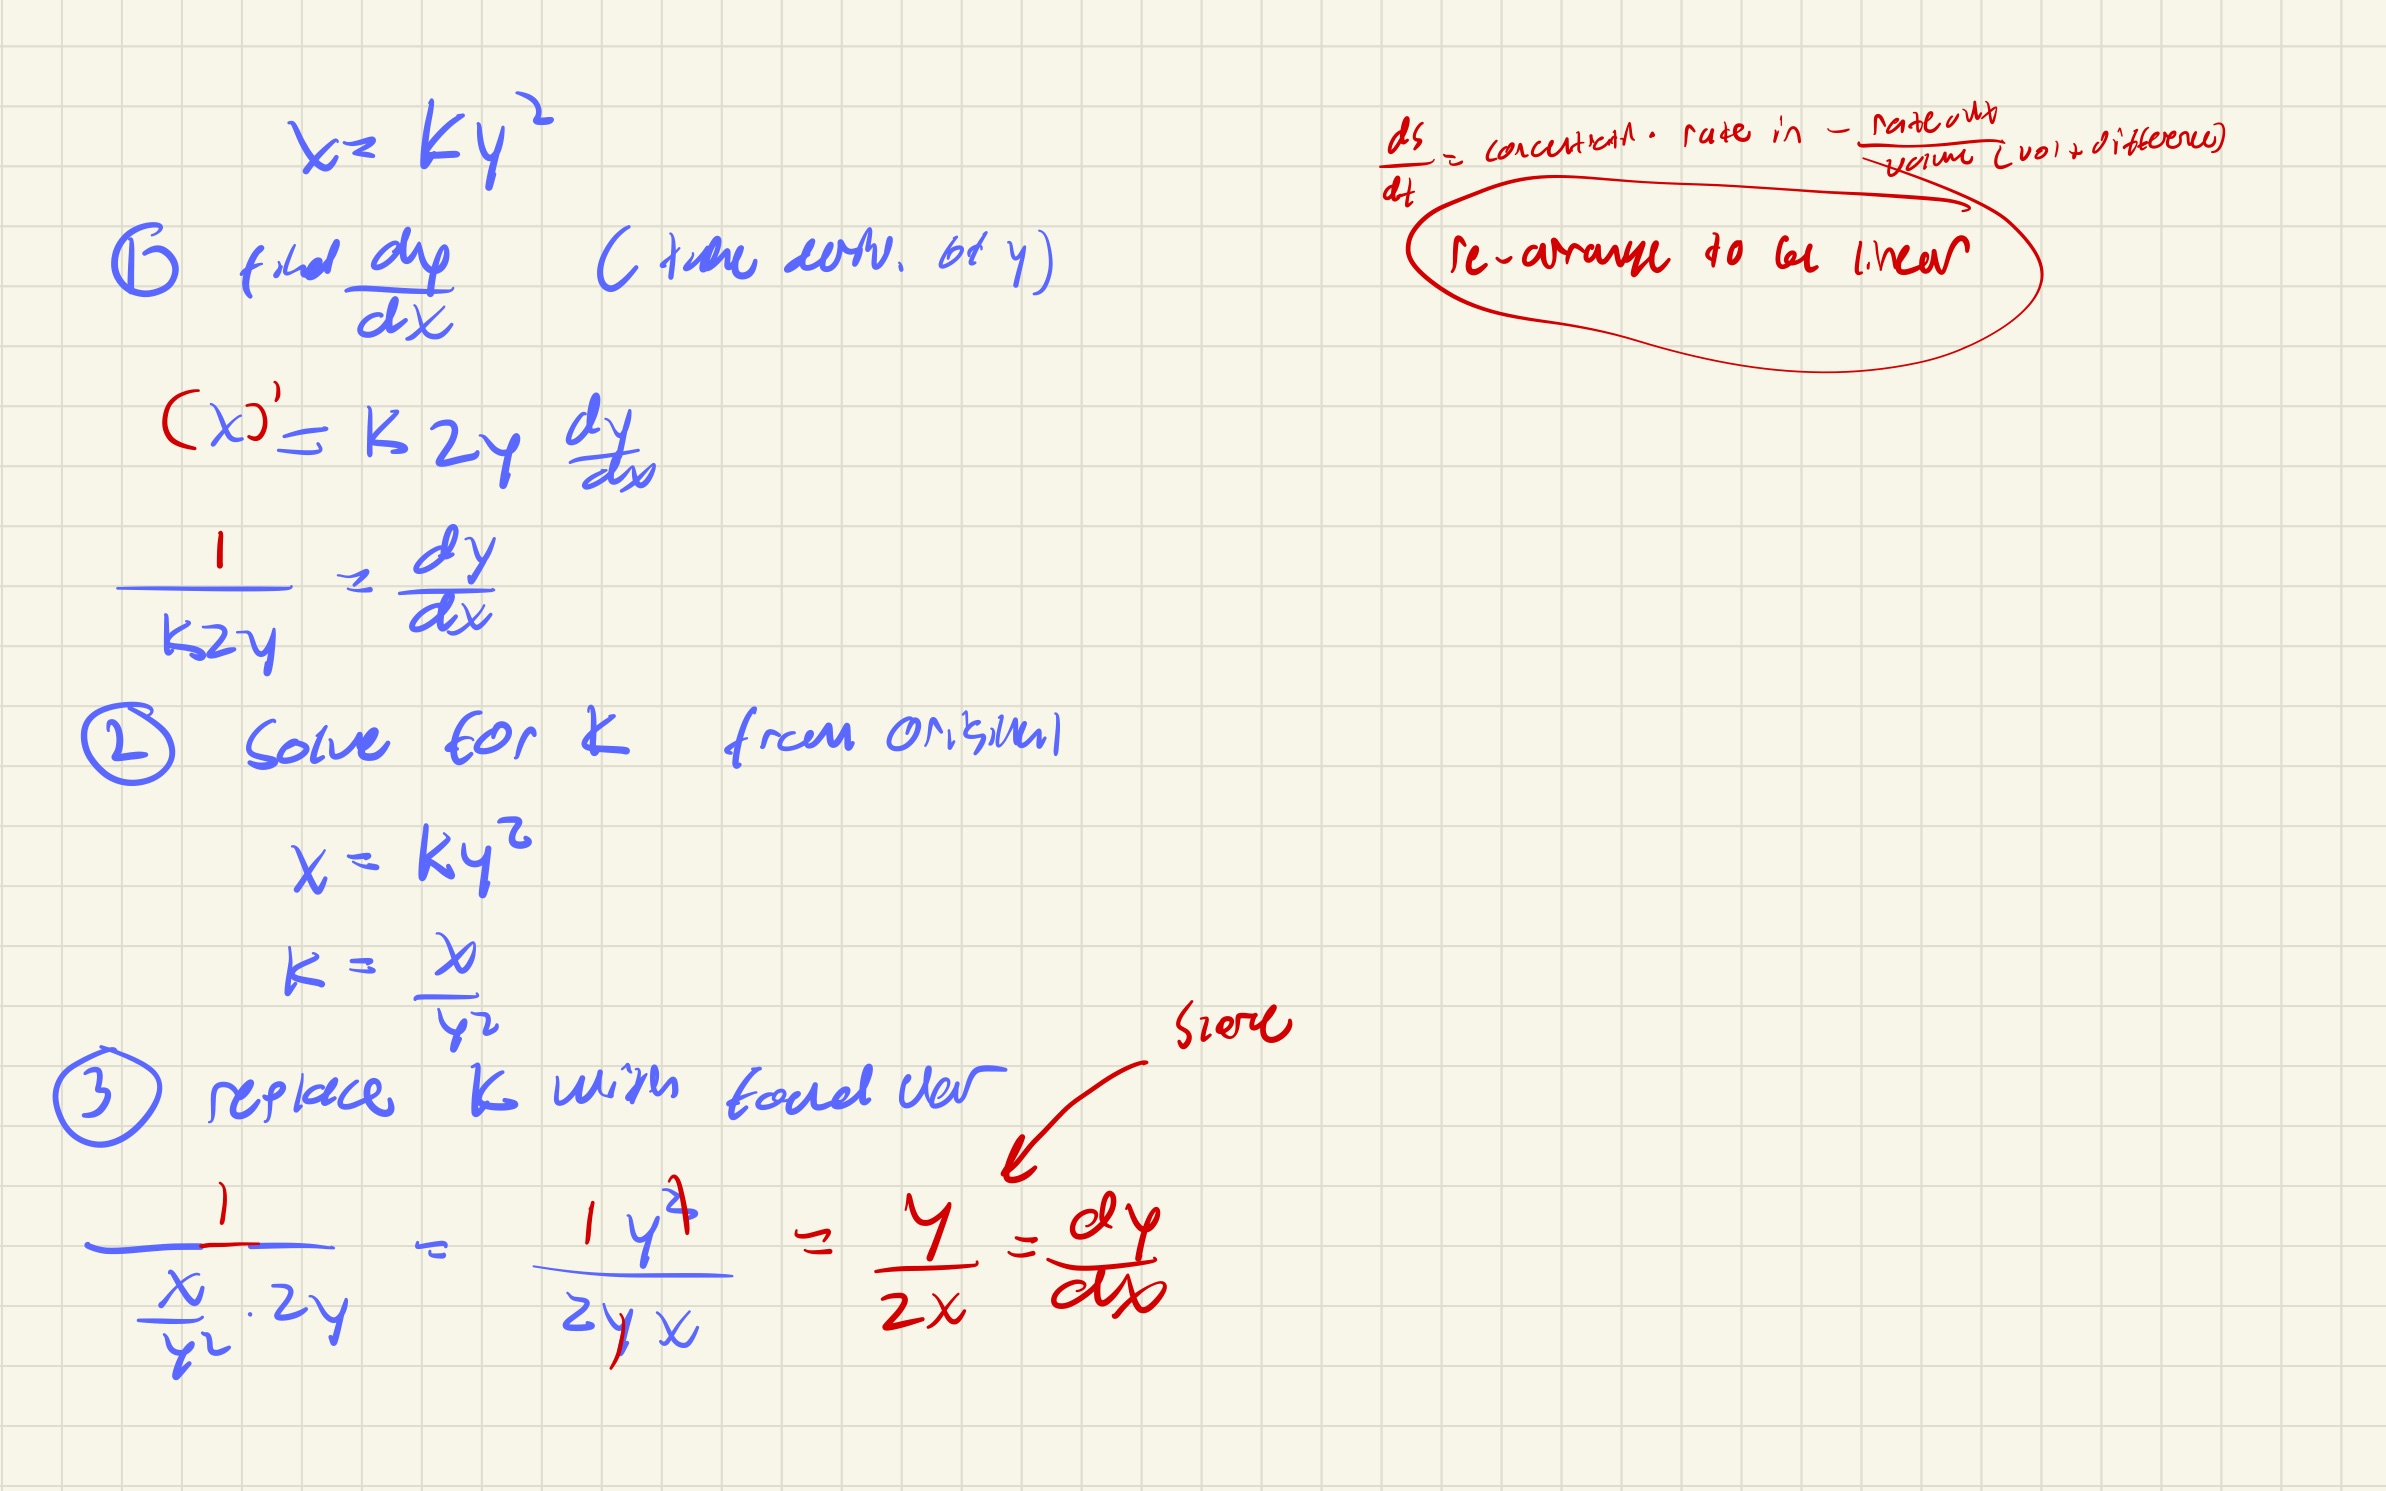 x = ky²
① find dy/dx (take deriv. of y)
(x)' = k 2y dy/dx
1/(k2y) = dy/dx
② Solve for k from original
x = ky²
k = x/y²
③ replace k with found der
1/(x/y² · 2y) = 1y²/(2yx) = y/(2x) = dy/dx
slope
ds/dt = concentrat. · rate in - rate out/volume (vol + difference)
re-arrange to be linear